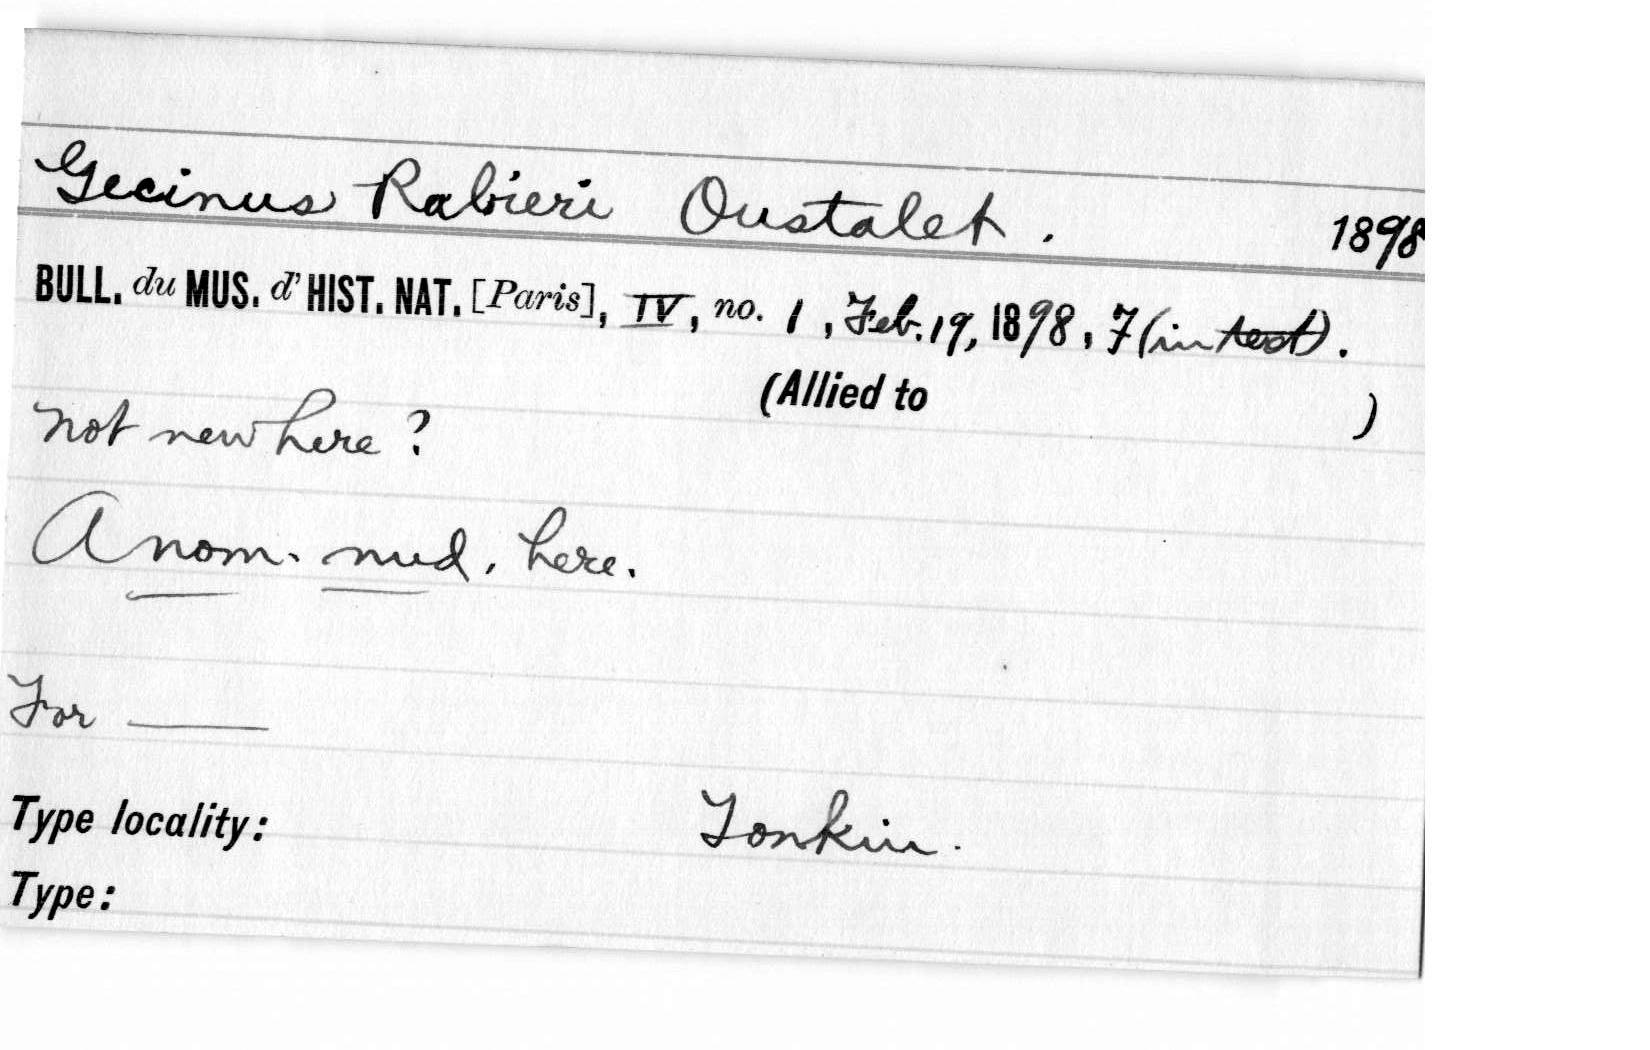 Gecinus Rabieri Oustalet. 1898
BULL. du MUS. d' HIST. NAT. [Paris], IV, no. 1, Feb. 19, 1898, 7 (in text).
(Allied to )
not new here?
A nom. nud. here.
For ———
Type locality: Tonkin.
Type: